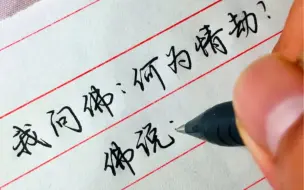 我问佛:何为情劫?
佛说: